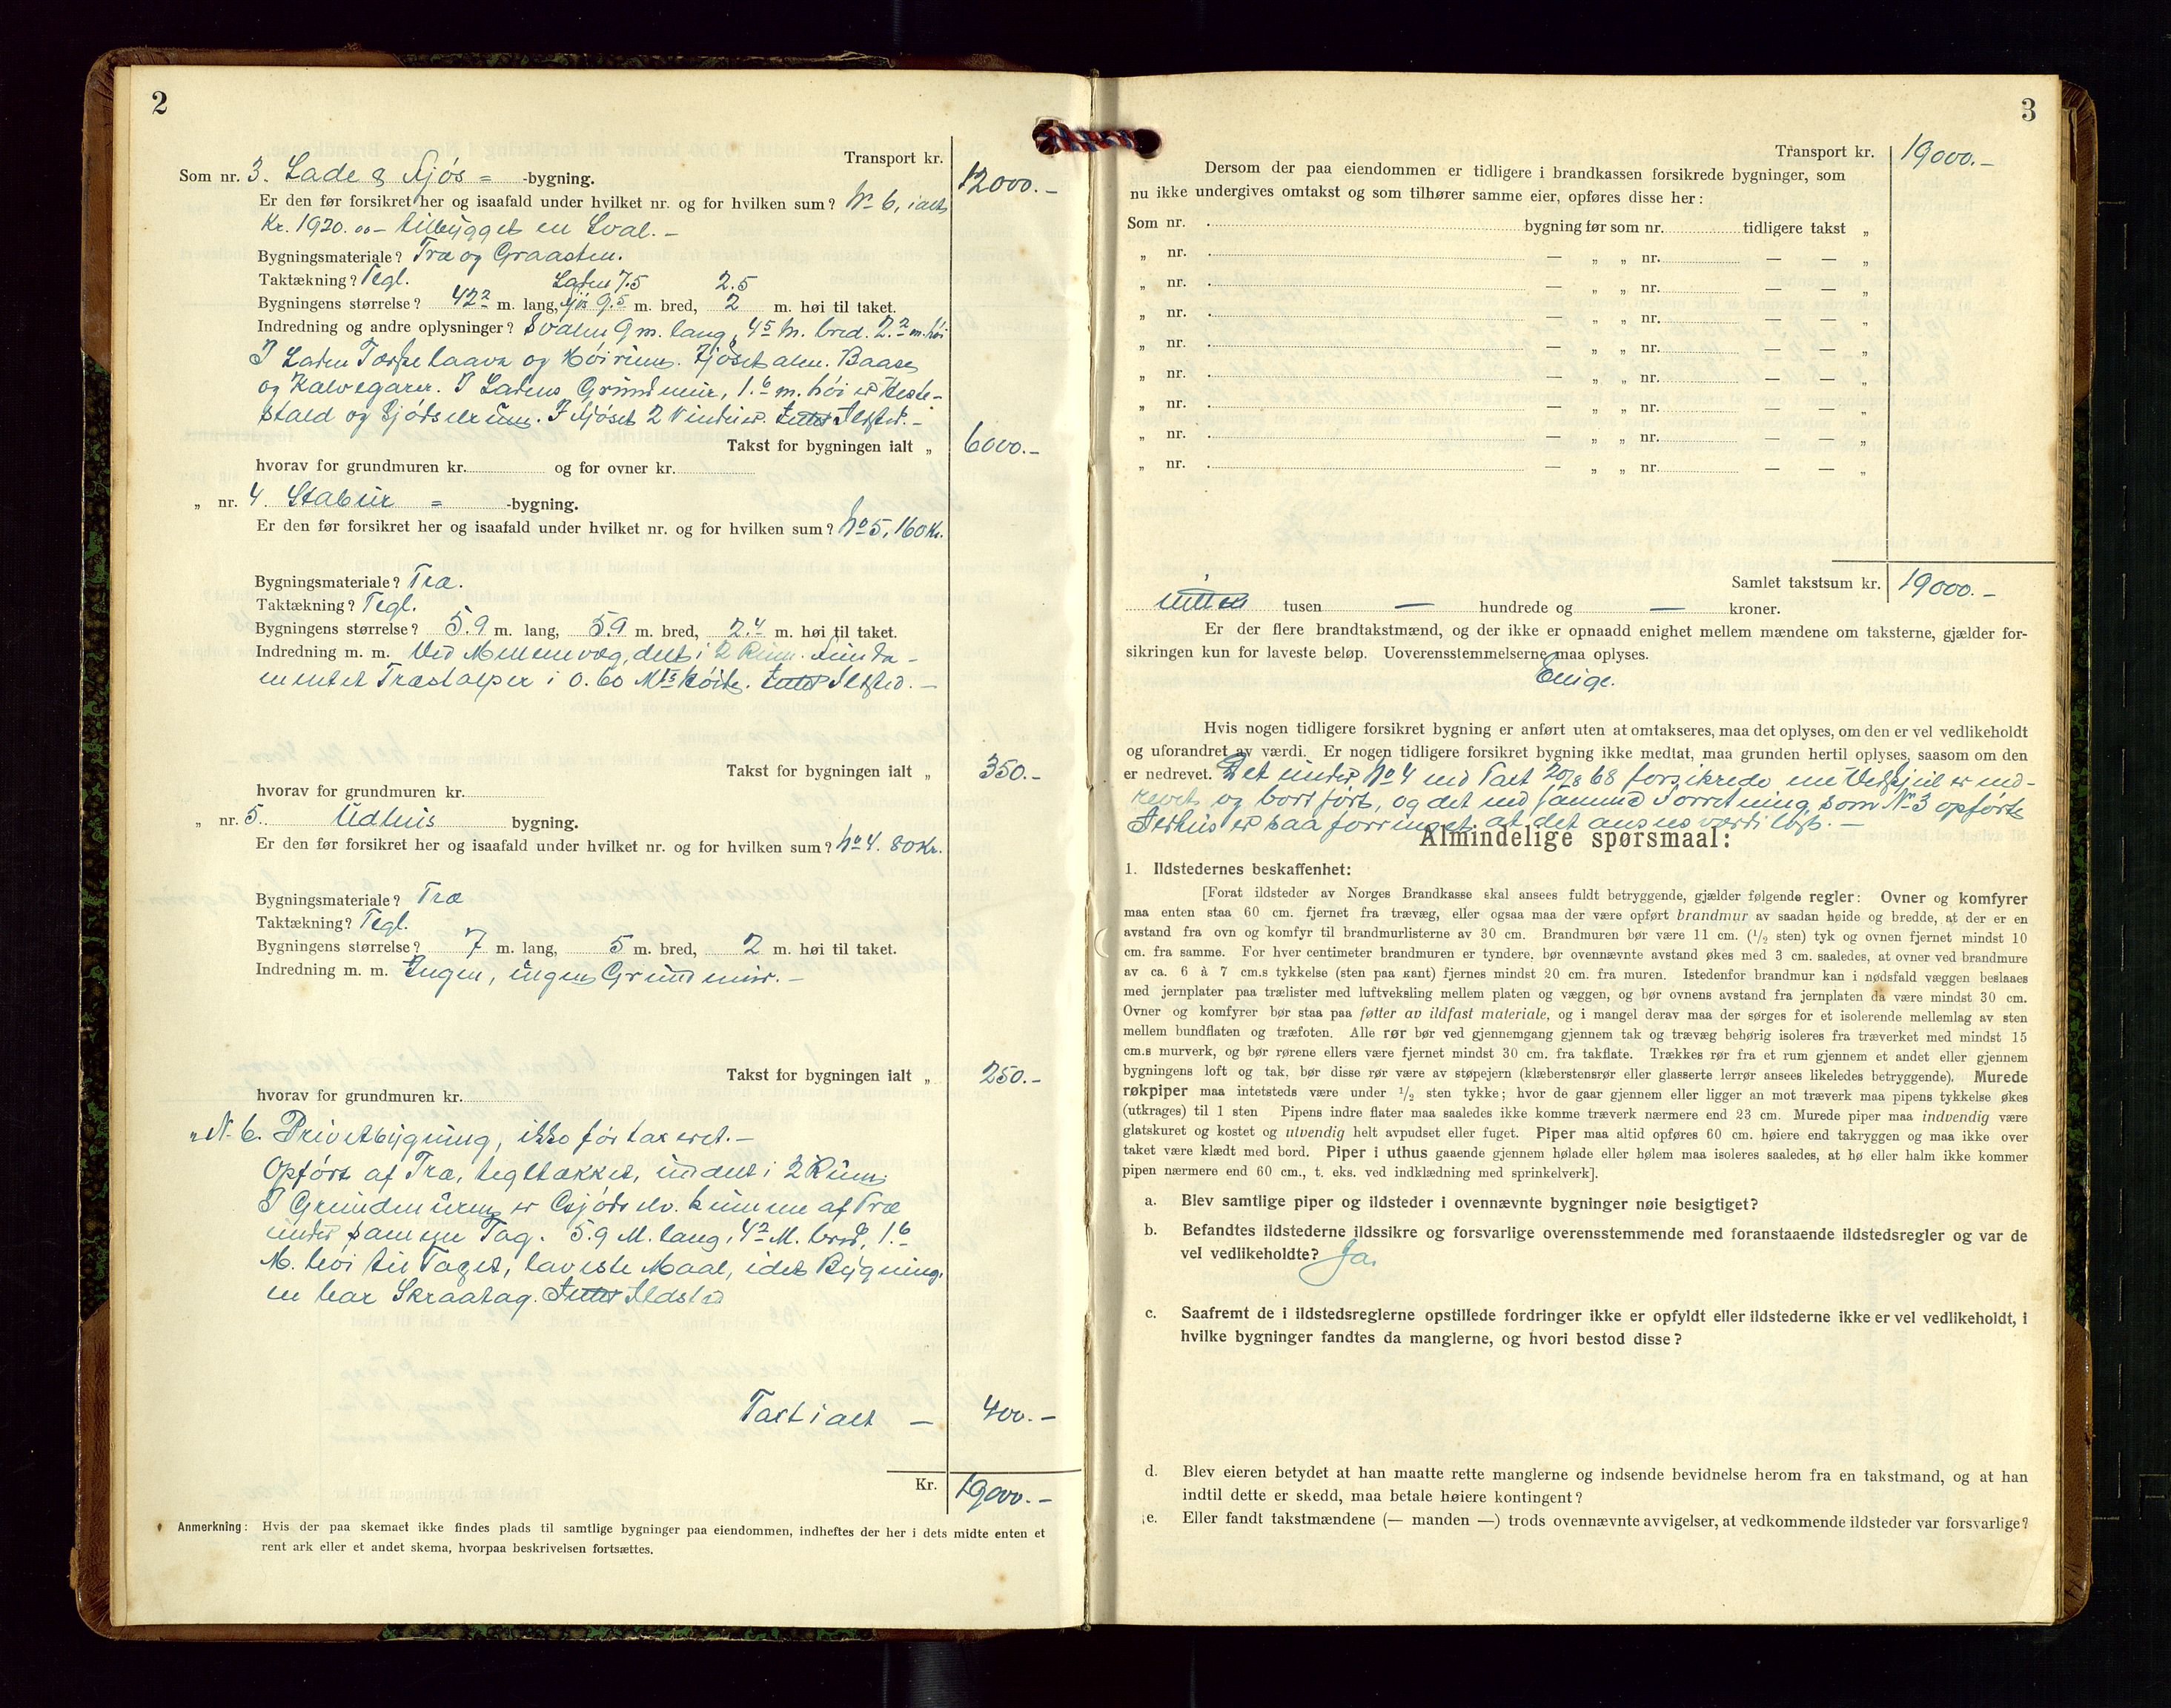 2
Transport kr. 12000.-
Som nr. 3. Lade & Fjøs = -bygning.
Er den før forsikret her og isaafald under hvilket nr. og for hvilken sum? No 6, ialt
Kr. 1920.00 - tilbygget en Sval. -
Bygningsmateriale? Træ og Graasten.
Taktækning? Tegl. Laden 7.5 2.5
Bygningens størrelse? 42.2 m. lang, Fjøs 9.5 m. bred, 2 m. høi til taket.
Indredning og andre oplysninger? Svalen 9 m. lang, 4.5 m. bred. 2.2 m. høi
I Laden Tærskelaave og Høirum. Fjøset alm. Baase
og Kalvegarer. I Ladens Grundmur, 1.6 m. høi er Heste-
stald og Gjødselrum. I Fjøset 2 Vinduer. Intet Ildsted. -
Takst for bygningen ialt „ 6000.-
hvorav for grundmuren kr. og for ovner kr.
„ nr. 4. Stabur = -bygning.
Er den før forsikret her og isaafald under hvilket nr. og for hvilken sum? No 5, 160 Kr.
Bygningsmateriale? Træ.
Taktækning? Tegl.
Bygningens størrelse? 5.9 m. lang, 5.9 m. bred, 2.4 m. høi til taket.
Indredning m. m. Ved Mellemvæg, delt i 2 Rum. Funda-
mentet Træstolper i 0.60 Mts Høide. Intet Ildsted. -
Takst for bygningen ialt „ 350.-
hvorav for grundmuren kr.
„ nr. 5. Udhus bygning.
Er den før forsikret her og isaafald under hvilket nr. og for hvilken sum? No 4. 80 Kr.
Bygningsmateriale? Træ
Taktækning? Tegl.
Bygningens størrelse? 7 m. lang, 5 m. bred, 2 m. høi til taket.
Indredning m. m. Ingen, ingen Grundmur. -
Takst for bygningen ialt „ 250.-
hvorav for grundmuren kr.
„ N. 6. Privetbygning, ikke før taxeret. -
Opført af Træ, tegltækket, inddelt i 2 Rum.
I Grundmuren er Gjødselv. kumme af Træ
under samme Tag. 5.9 M. lang, 4.2 M. bred, 1.6
M. høi til Taget, laveste Maal, idet Bygning-
en har Skraatag. Intet Ildsted
Taxt ialt - 400.-
Kr. 19000.-
Anmerkning: Hvis der paa skemaet ikke findes plads til samtlige bygninger paa eiendommen, indheftes der her i dets midte enten et
rent ark eller et andet skema, hvorpaa beskrivelsen fortsættes.
3
Transport kr. 19000.-
Dersom der paa eiendommen er tidligere i brandkassen forsikrede bygninger, som
nu ikke undergives omtakst og som tilhører samme eier, opføres disse her:
Som nr. bygning før som nr. tidligere takst „
„ nr. — „ „ nr. — — „
„ nr. — „ „ nr. — — „
„ nr. — „ „ nr. — — „
„ nr. — „ „ nr. — — „
„ nr. — „ „ nr. — — „
„ nr. — „ „ nr. — — „
„ nr. — „ „ nr. — — „
„ nr. — „ „ nr. — — „
Samlet takstsum kr. 19000.-
nitten tusen — hundrede og — kroner.
Er der flere brandtakstmænd, og der ikke er opnaadd enighet mellem mændene om taksterne, gjælder for-
sikringen kun for laveste beløp. Uoverensstemmelserne maa oplyses.
Enige.
Hvis nogen tidligere forsikret bygning er anført uten at omtakseres, maa det oplyses, om den er vel vedlikeholdt
og uforandret av værdi. Er nogen tidligere forsikret bygning ikke medtat, maa grunden hertil oplyses, saasom om den
er nedrevet. Det under No 4 ved Taxt 20/8 68 forsikrede er ned-
revet og bortført, og det ved samme Forretning som No 3 opførte
Ildhus er saa forringet, at det ansees værdiløst. -
Almindelige spørsmaal:
1. Ildstedernes beskaffenhet:
[Forat ildsteder av Norges Brandkasse skal ansees fuldt betryggende, gjælder følgende regler: Ovner og komfyrer
maa enten staa 60 cm. fjernet fra trævæg, eller ogsaa maa der være opført brandmur av saadan høide og bredde, at der er en
avstand fra ovn og komfyr til brandmurlisterne av 30 cm. Brandmuren bør være 11 cm. (1/2 sten) tyk og ovnen fjernet mindst 10
cm. fra samme. For hver centimeter brandmuren er tyndere, bør ovennævnte avstand økes med 3 cm. saaledes, at ovner ved brandmure
av ca. 6 à 7 cm.s tykkelse (sten paa kant) fjernes mindst 20 cm. fra muren. Istedenfor brandmur kan i nødsfald væggen beslaaes
med jernplater paa trælister med luftveksling mellem platen og væggen, og bør ovnens avstand fra jernplaten da være mindst 30 cm.
Ovner og komfyrer bør staa paa føtter av ildfast materiale, og i mangel derav maa der sørges for et isolerende mellemlag av sten
mellem bundflaten og træfoten. Alle rør bør ved gjennemgang gjennem tak og trævæg behørig isoleres fra træverket med mindst 15
cm.s murverk, og bør rørene ellers være fjernet mindst 30 cm. fra takflate. Trækkes rør fra et rum gjennem et andet eller gjennem
bygningens loft og tak, bør disse rør være av støpejern (klæberstensrør eller glasserte lerrør ansees likeledes betryggende). Murede
røkpiper maa intetsteds være under 1/2 sten tykke; hvor de gaar gjennem eller ligger an mot træverk maa pipens tykkelse økes
(utkrages) til 1 sten Pipens indre flater maa saaledes ikke komme træverk nærmere end 23 cm. Murede piper maa indvendig være
glatskuret og kostet og utvendig helt avpudset eller fuget. Piper maa altid opføres 60 cm. høiere end takryggen og maa ikke over
taket være klædt med bord. Piper i uthus gaaende gjennem hølade eller hølem maa isoleres saaledes, at hø eller halm ikke kommer
pipen nærmere end 60 cm., t. eks. ved indklædning med sprinkelverk].
a. Blev samtlige piper og ildsteder i ovennævnte bygninger nøie besigtiget?
b. Befandtes ildstederne ildssikre og forsvarlige overensstemmende med foranstaaende ildstedsregler og var de
vel vedlikeholdte? Ja.
c. Saafremt de i ildstedsreglerne opstillede fordringer ikke er opfyldt eller ildstederne ikke er vel vedlikeholdt, i
hvilke bygninger fandtes da manglerne, og hvori bestod disse?
d. Blev eieren betydet at han maatte rette manglerne og indsende bevidnelse herom fra en takstmand, og at han
indtil dette er skedd, maa betale høiere kontingent?
e. Eller fandt takstmændene (— manden —) trods ovennævnte avvigelser, at vedkommende ildsteder var forsvarlige?